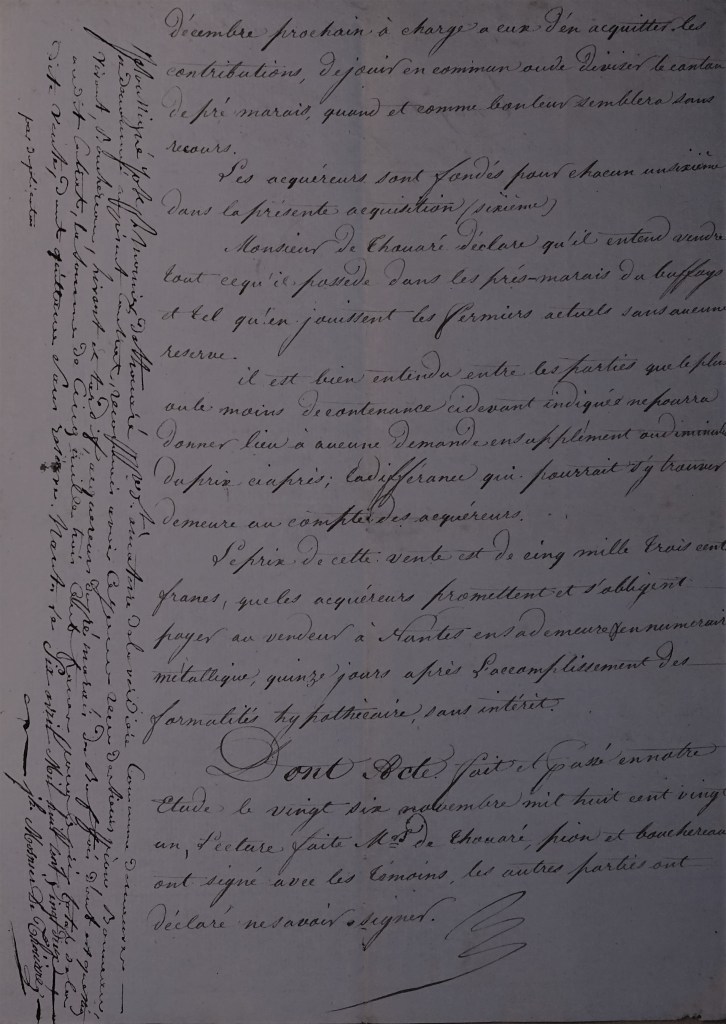 décembre prochain à charge a eux d'en acquitter les
contributions, de jouir en commun ou de diviser le canton
de pré marais, quand et comme bon leur semblera sans
recours.
Les acquéreurs sont fondés pour chacun un sixième
dans la présente acquisition (sixième)
Monsieur de Thouaré déclare qu'il entend vendre
tout ce qu'il possède dans les prés-marais du buffays
et tel qu'en jouissent les fermiers actuels sans aucune
reserve.
il est bien entendu entre les parties que le plus
ou le moins de contenance ci devant indiqués ne pourra
donner lieu à aucune demande en supplément ou diminution
du prix ci après; la différance qui pourrait s'y trouver
demeure au compte des acquéreurs.
Le prix de cette vente est de cinq mille trois cent
francs, que les acquéreurs promettent et s'obligent
payer au vendeur à Nantes en sa demeure en numeraire
métallique, quinze jours après l'accomplissement des
formalités hypothecaire, sans intérit.
Dont Acte, fait et passé en notre
Etude le vingt six novembre mil huit cent vingt
un, Lecture faite Mrs de Thouaré, pion et bouchereau
ont signé avec les témoins, les autres parties ont
déclaré ne savoir signer.
Je soussigné Mosnier de Thouaré de la Commune
contrat, reconnais avoir reçu des sieurs pion
acquereurs du pré marais du
au dit Contrat, la somme de Cinq mille trois Cents francs
dite vente, dont quittance sans reserve. Nantes le Six avril Mil huit cent vingt
par duplicata
Mosnier De Thouaré